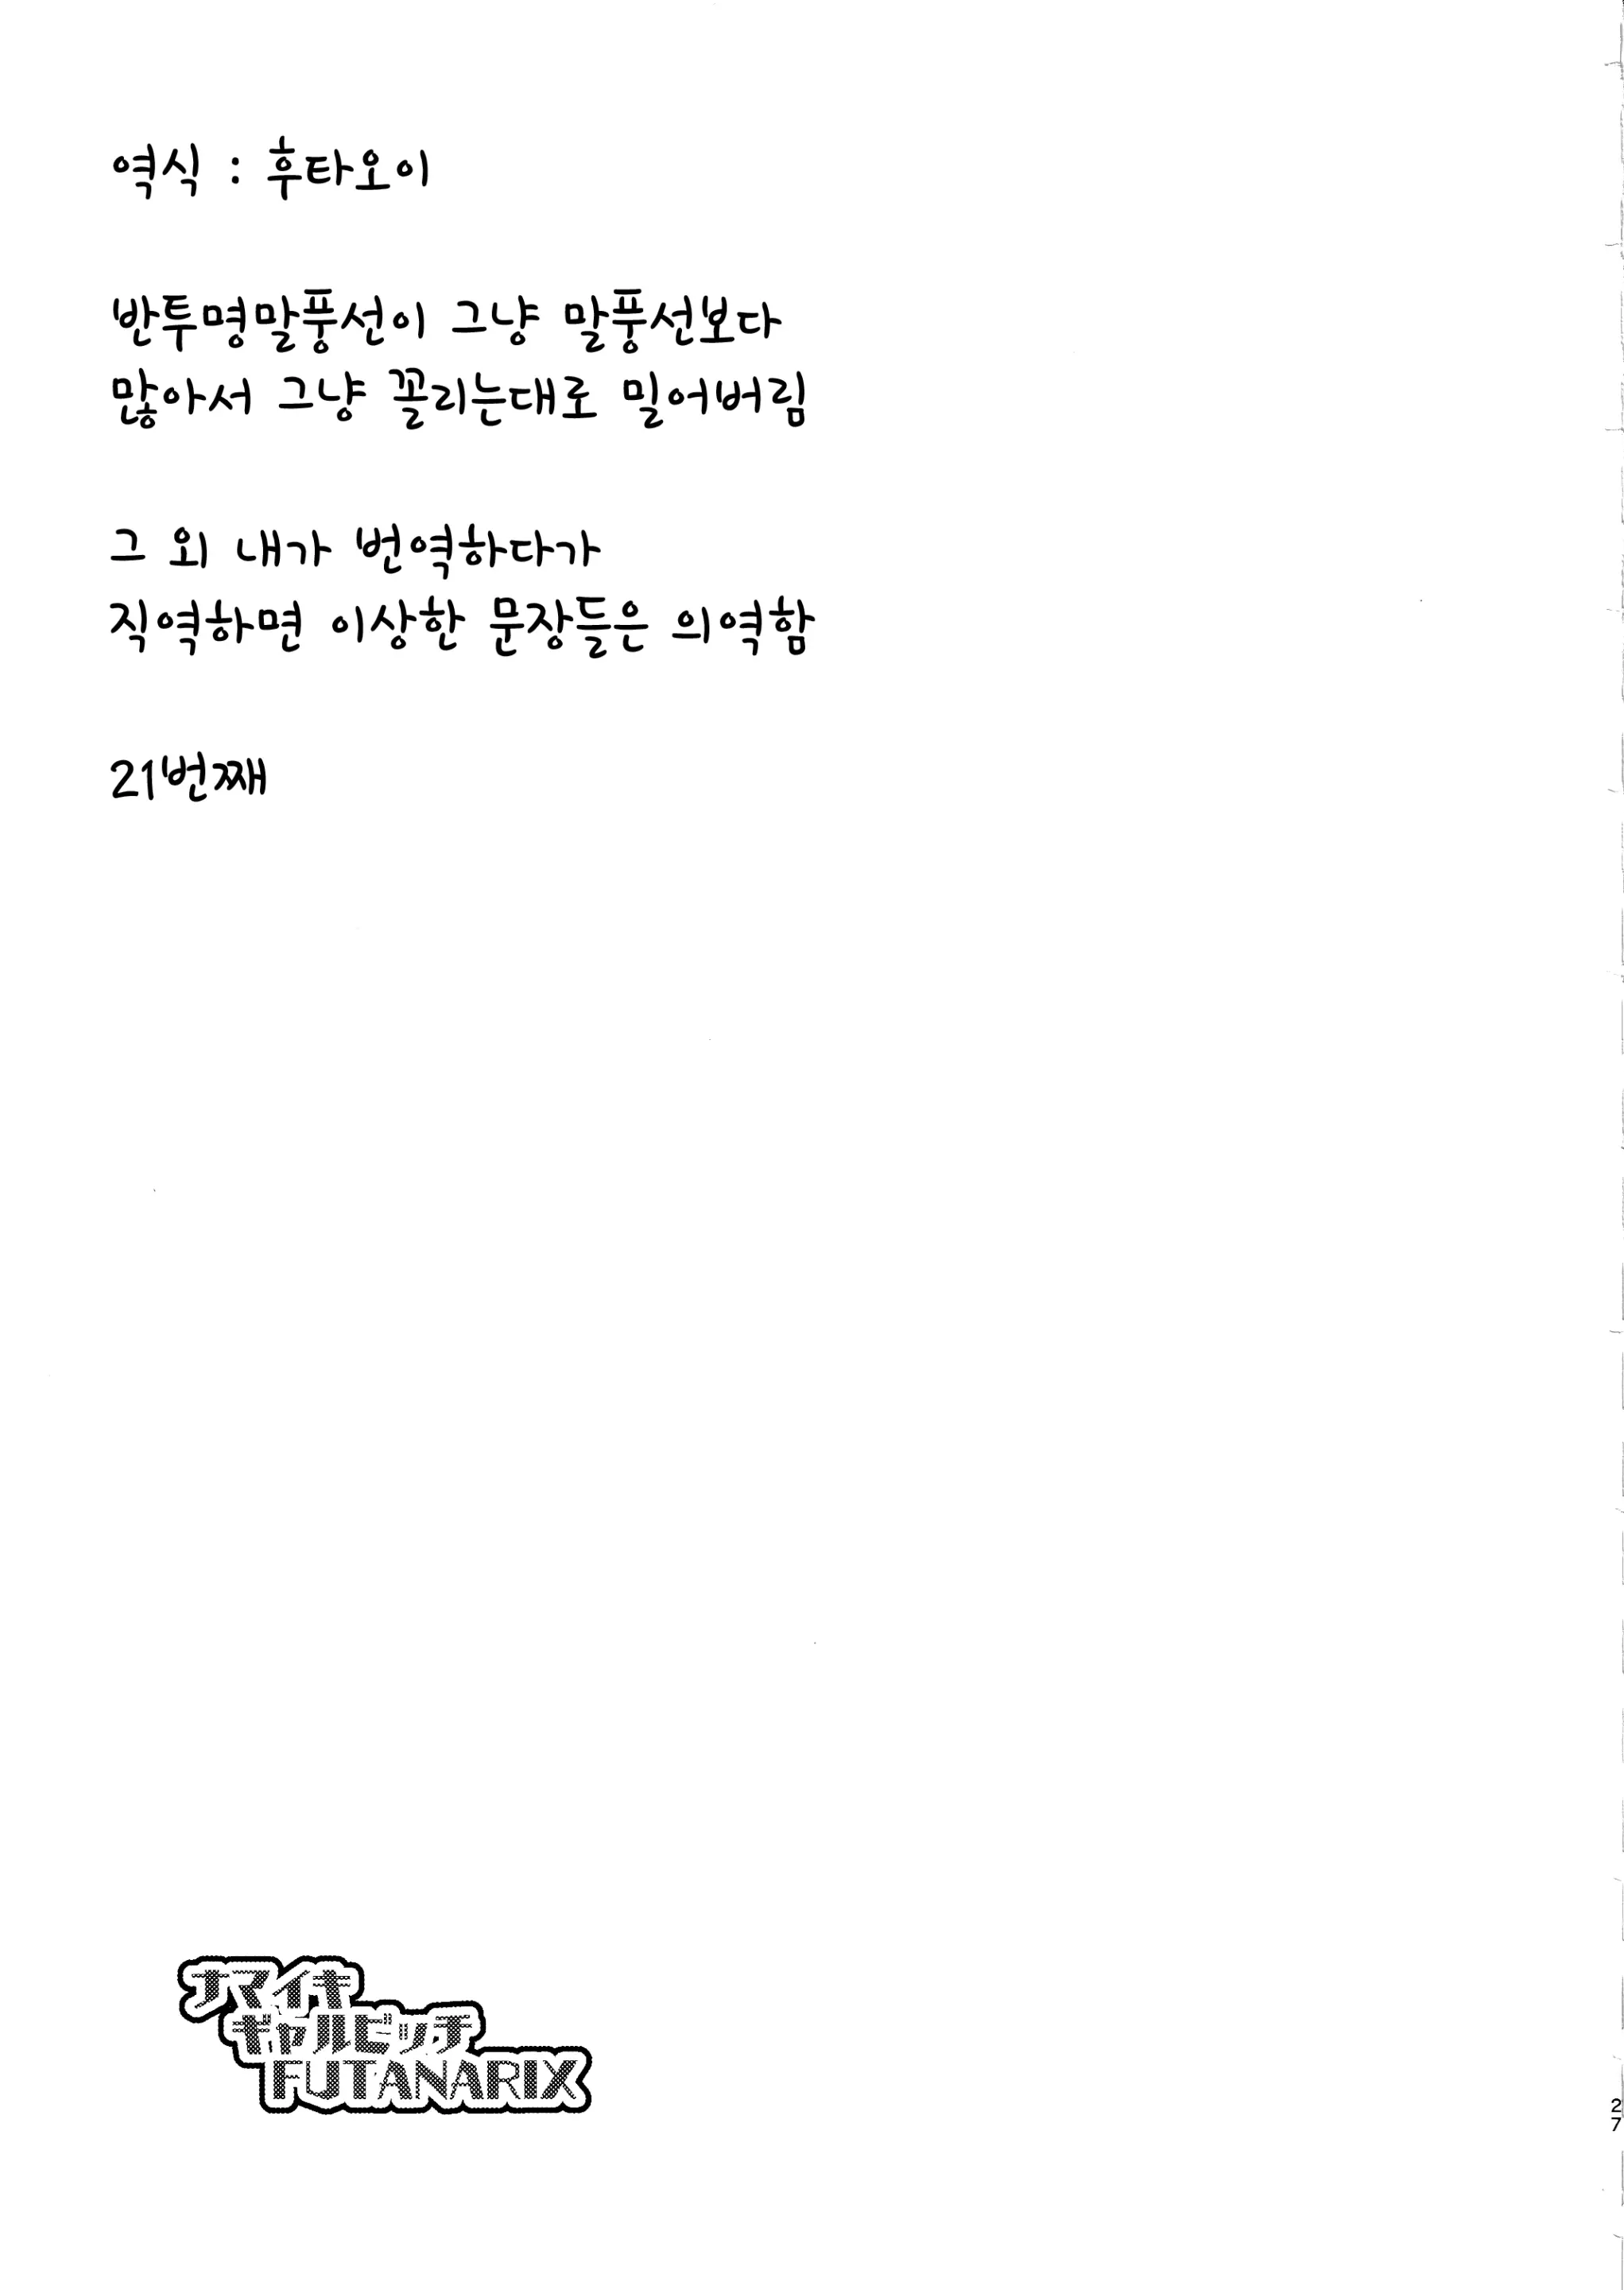 역식 : 후타오이
반투명말풍선이 그냥 말풍선보다
많아서 그냥 꼴리는대로 밀어버림
그 외 내가 번역하다가
직역하면 이상한 문장들은 의역함
21번째
ナマイキ
ギャルビッチ
FUTANARIX
27